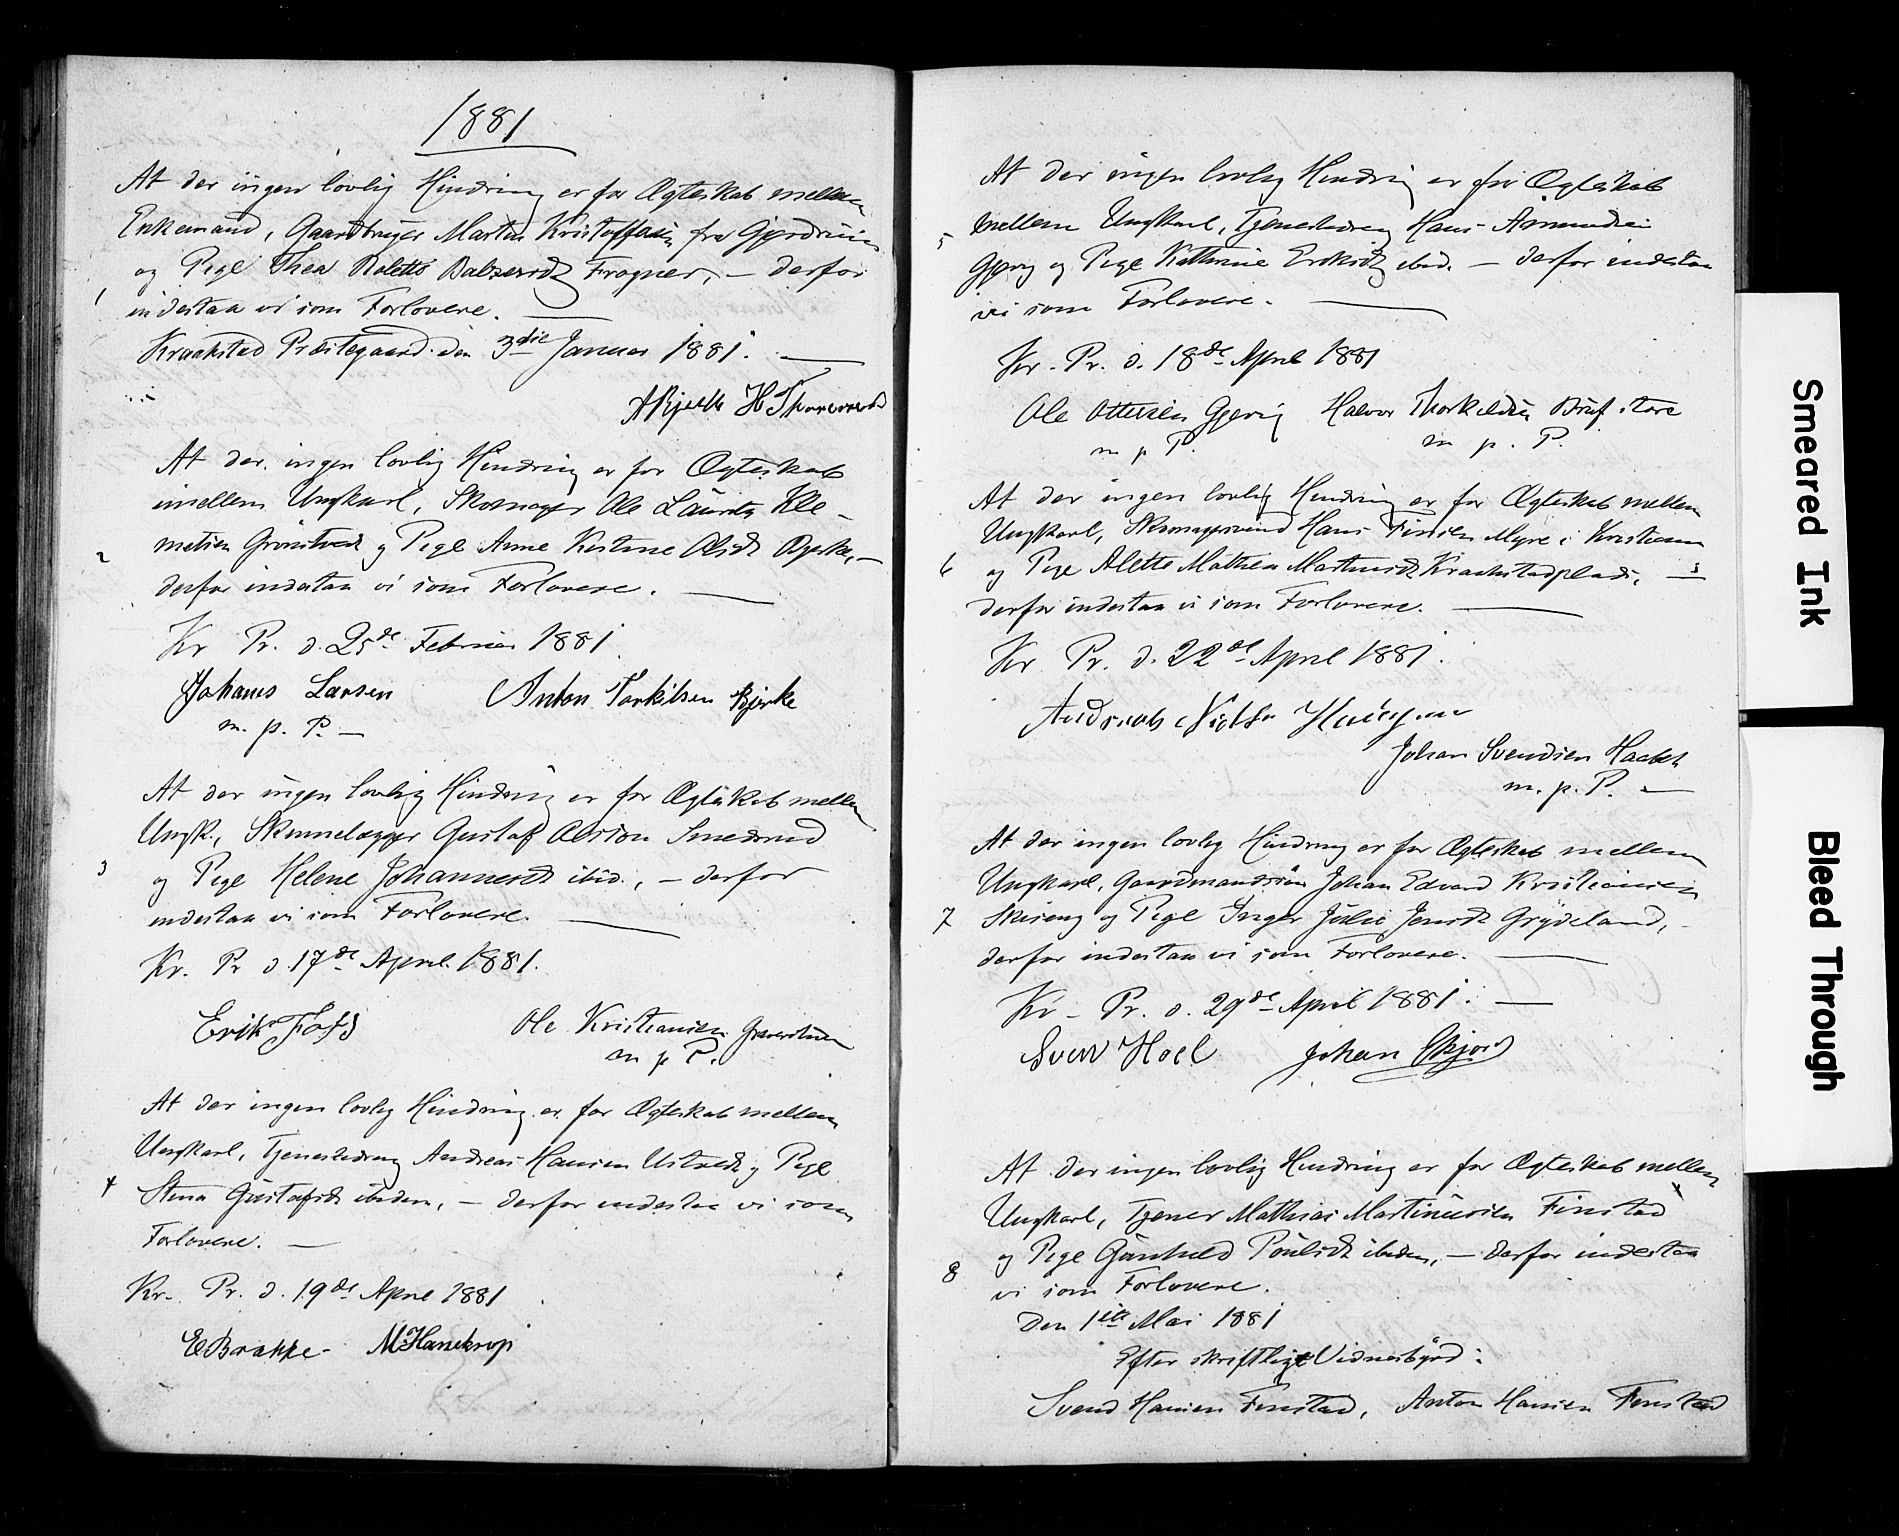 1881
At der ingen lovlig Hindring er for Ægteskab mellem
Enkemand, Gaardbruger Martin Kristoffersen fra Gjerdrum
og Pige Thea Roletta Balzersdt Frogner, — derfor
1
indestaa vi som Forlovere. —
Kraakstad Præstegaard den 3die Januar 1881. —
H
At der ingen lovlig Hindring er for Ægteskab
mellem Ungkarl, Skomager Ole Laurits Kle-
metsen Grønstvedt og Pige Anne Kristine Olsdt Bjerke, —
2
derfor indestaa vi som Forlovere. —
Kr Pr. d. 25de Februar 1881.
Johanes Larsen Anton Torkilsen Bjerke
m. p. P. —
At der ingen lovlig Hindring er for Ægteskab mellem
Ungk., Skinnelægger Gustaf Smedsrud
3
og Pige Helene Johannesdt ibid., — derfor
indestaa vi som Forlovere. —
Kr. Pr d. 17de April 1881.
Erik Foss Ole Kristiansen
m p P.
At der ingen lovlig Hindring er for Ægteskab mellem
Ungkarl, Tjenestedreng Andreas Hansen Ustvedt og Pige
4
Stina Gustafsdt ibidem, — derfor indestaa vi som
Forlovere. —
Kr. Pr. d. 19de April 1881
E Brække. M Hanekrop
At der ingen lovlig Hindring er for Ægteskab
5
mellem Ungkarl, Tjenestedreng Hans Amundsen
Gjevig og Pige Kathrine Eriksdt ibid. — derfor indestaa
vi som Forlovere. —
Kr. Pr. d. 18de April 1881
Ole Ottersen Gjevig Halvor Thorkildsen store
m p P. m p. P.
At der ingen lovlig Hindring er for Ægteskab mellem
Ungkarl, Skomagersvend Hans Myre i Kristiania
6
og Pige Alette Mathea Martinsdt Kraakstadplads, —
derfor indestaa vi som Forlovere. —
Kr Pr. d. 22de April 1881.
Andreas Haugen
Johan Svendsen
m. p. P. —
At der ingen lovlig Hindring er for Ægteskab mellem
Ungkarl, Gaardmandssøn Johan Edvard Kristiansen
7
Skiseng og Pige Inger Julie Jensdt Grydeland,
derfor indestaa vi som Forlovere. —
Kr. Pr. d. 29de April 1881. —
Sven Hoel Johan Skjør
At der ingen lovlig Hindring er for Ægteskab mellem
Ungkarl, Tjener Mathias Martinusen Finstad
8
og Pige Gunhild Poulsdt ibidem, — derfor indestaa
vi som Forlovere.
Den 1ste Mai 1881
Efter skriftlige Vidnesbyrd:
Svend Hansen Finstad, Anton Hansen Finstad
Smeared Ink
Bleed Through